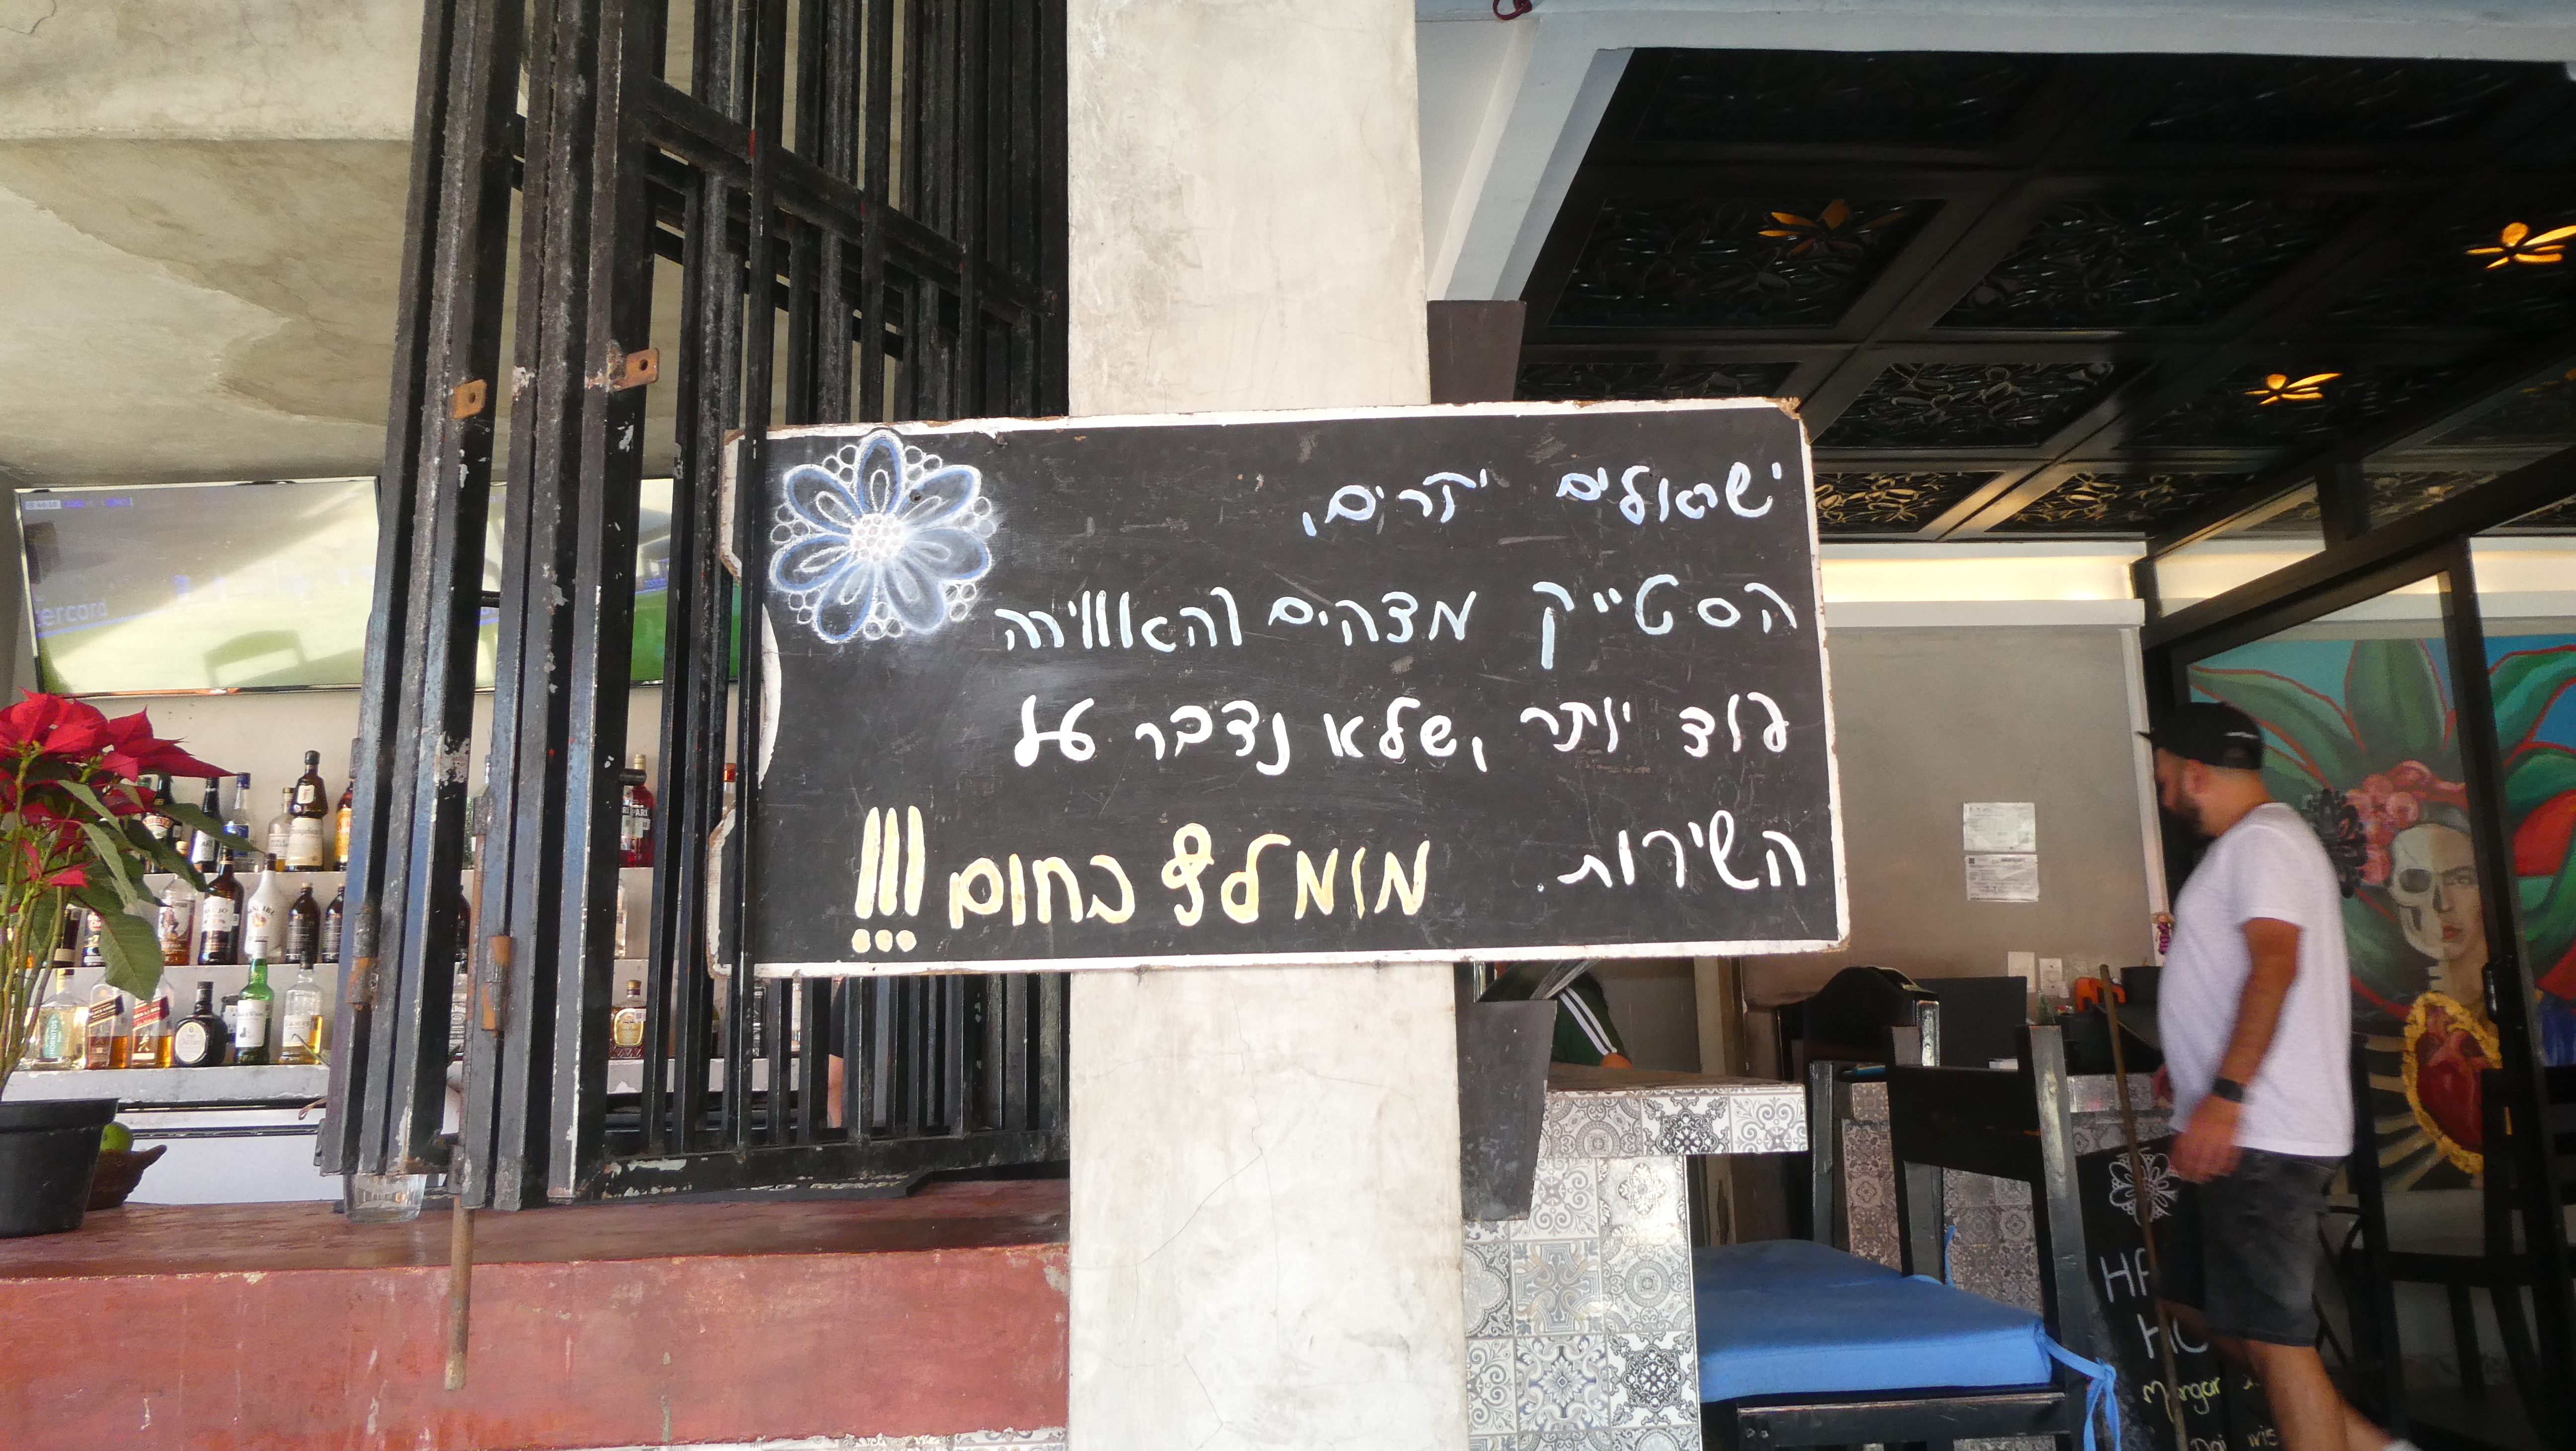 ישראלים יקרים,
הסטייק מצהים והאווירה
עוד יותר, שלא נדבר על
השירות.
מומלץ בחום!!!
HA
HO
Mangar